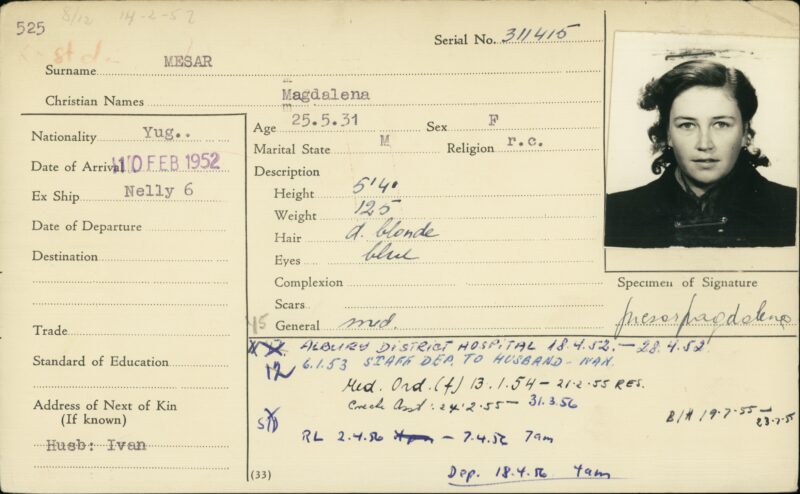 525
8/12 14-2-52
Serial No. 311415
Surname MESAR
Christian Names Magdalena
Nationality Yug..
Date of Arrival 10 FEB 1952
Ex Ship Nelly 6
Date of Departure
Destination
Trade
Standard of Education
Address of Next of Kin
(If known)
Husb: Ivan
Age 25.5.31 Sex F
Marital State M Religion r.c.
Description
Height 5'4"
Weight 125
Hair d. blonde
Eyes blue
Complexion
Scars
General med.
Specimen of Signature
Mesar Magdalena
45
ALBURY DISTRICT HOSPITAL 18.4.52. — 28.4.52
12 6.1.53 STAFF DEP. TO HUSBAND - IVAN.
Med. Ord. (f) 13.1.54 — 21.2.55 RES.
Creche Asst: 24.2.55 — 31.3.56
B/H 19.7.55 —
RL 2.4.56 — 7.4.56 7am
Dep. 18.4.56 7am
(33)